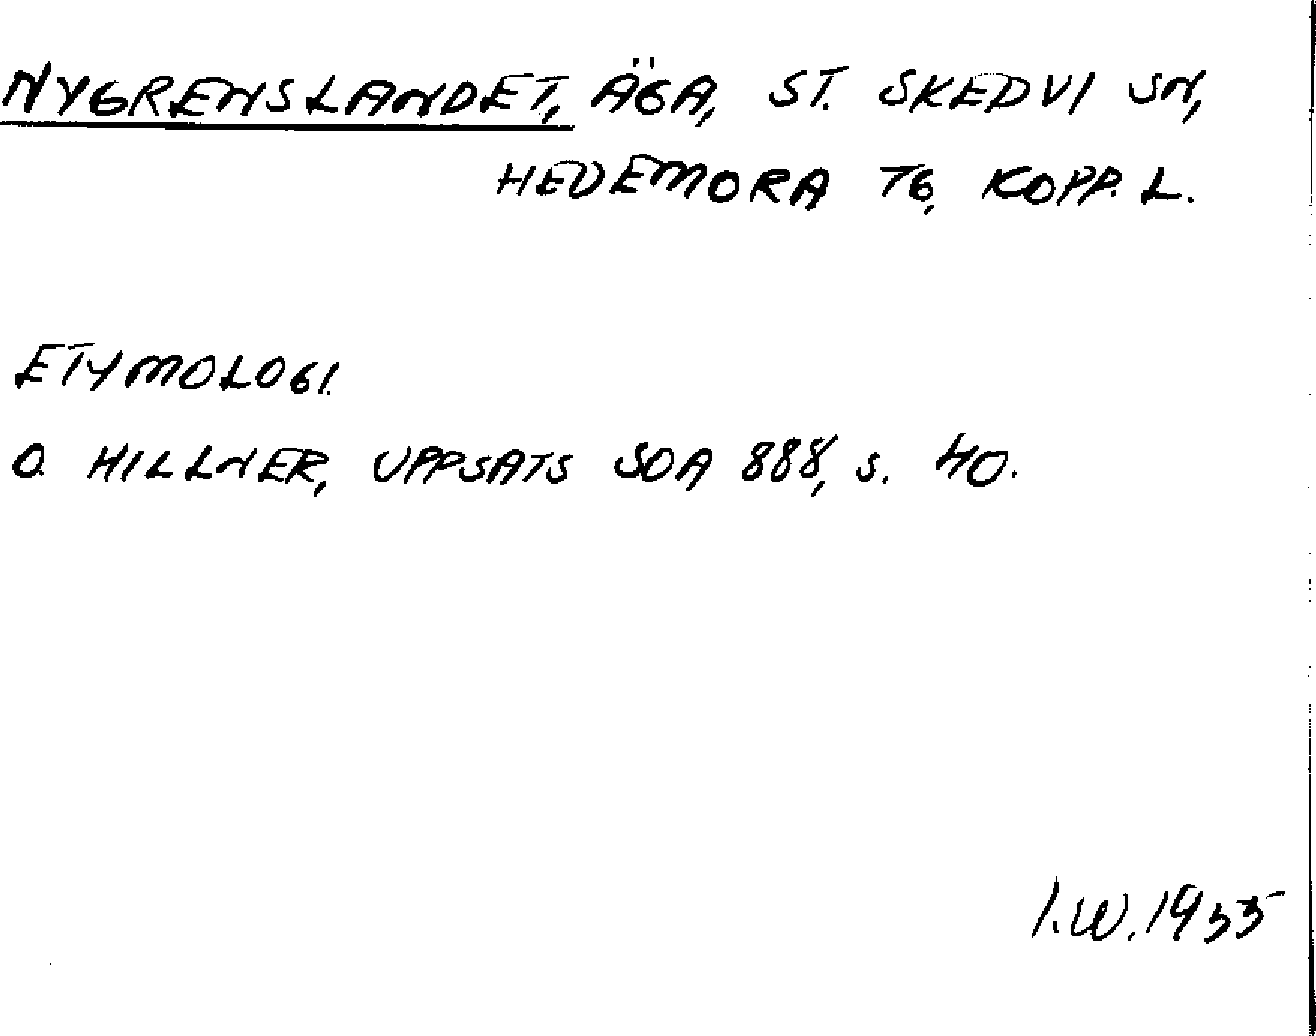 NYGRENSLANDET, ÄGA, ST. SKEDVI SN,
HEDEMORA TG, KOPP. L.
ETYMOLOGI.
O. HILLNER, UPPSATS SOA 888, S. 40.
I.W. 1955